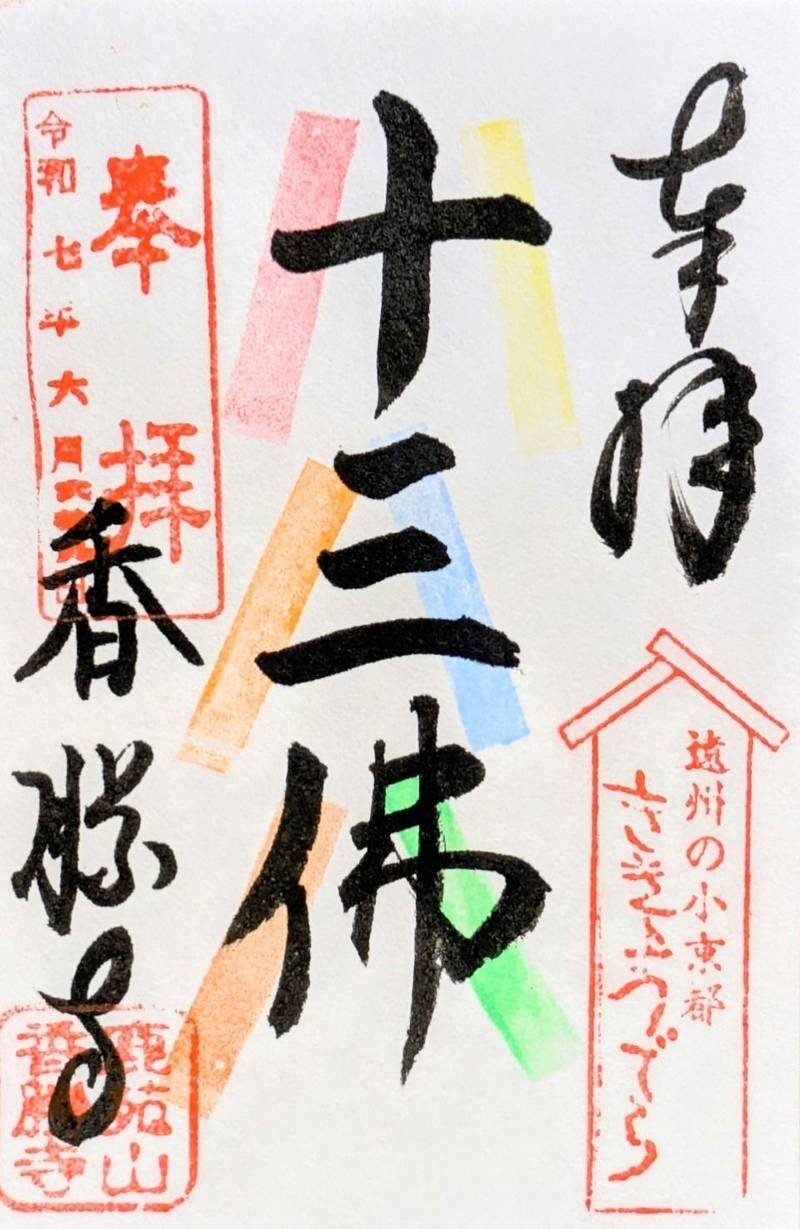 奉拝
遠州の小京都
ききょうでら
十三佛
奉拝
令和七年六月
香勝寺
鹿苑山
香勝寺